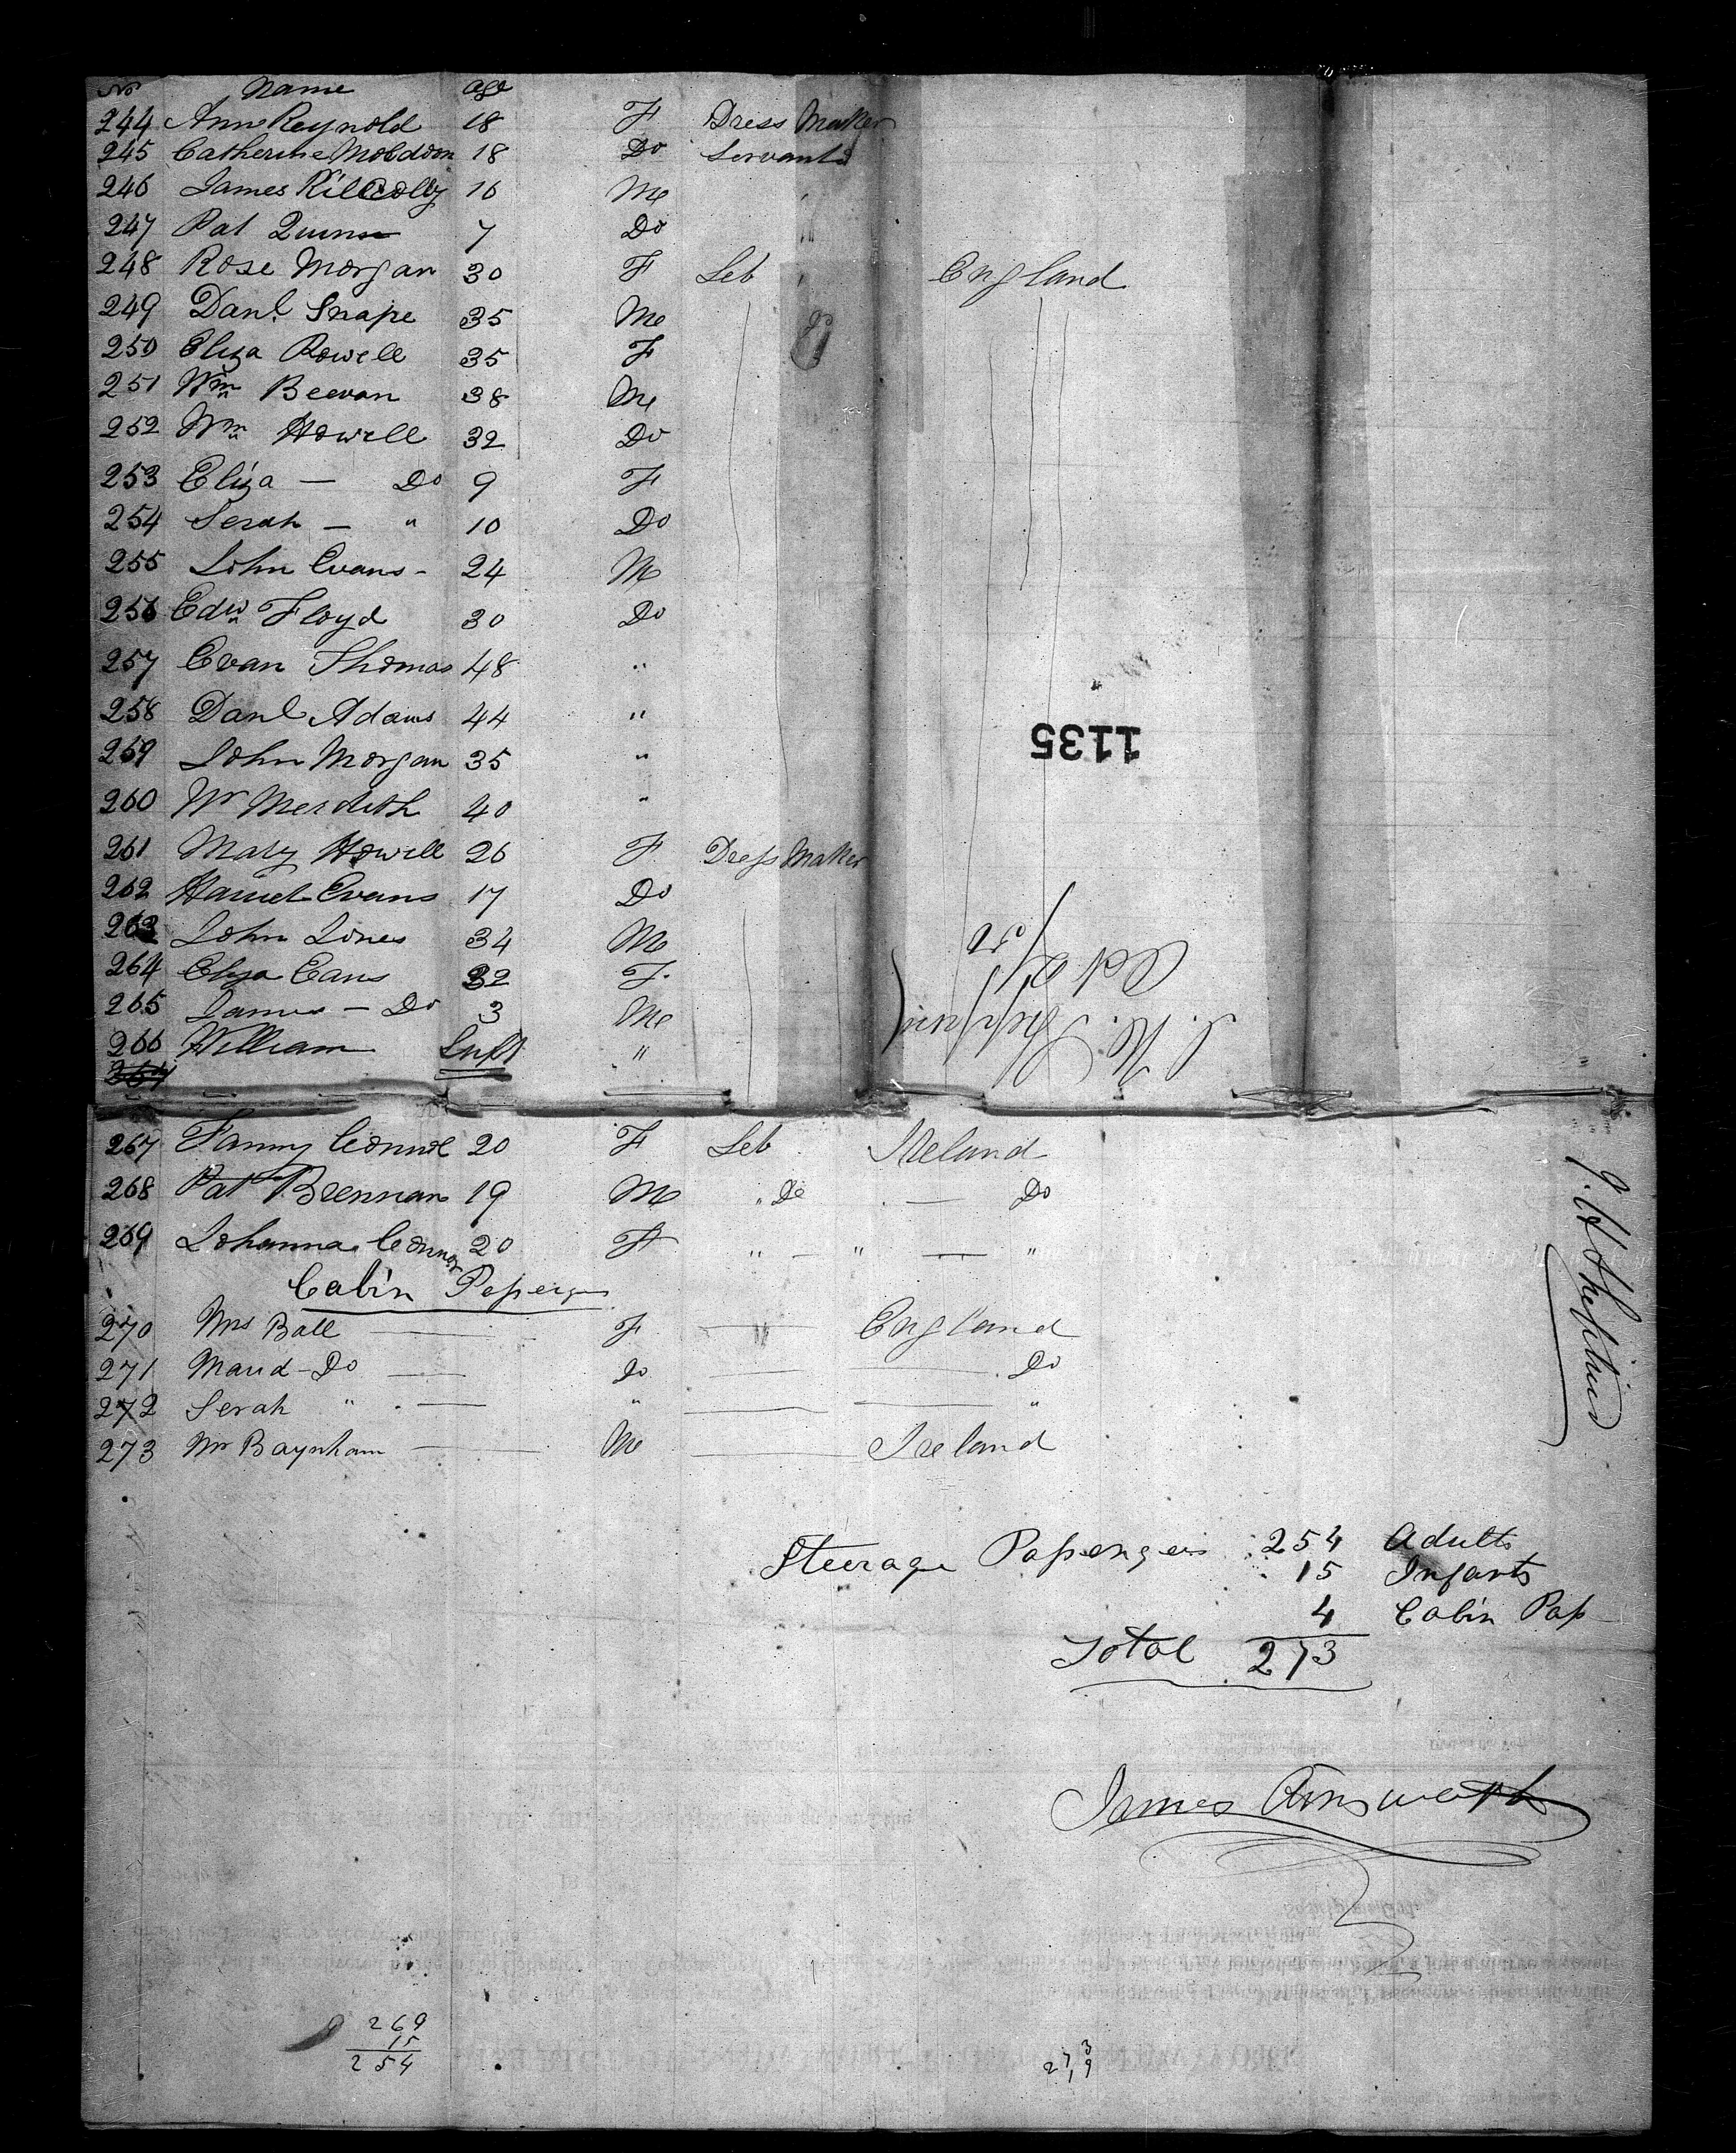 No Name age
244 Ann Reynold 18 F Dress Maker
245 Catherine Moldoon 18 Do Servant
246 James Kilcolly 16 Me "
247 Pat Quinn 7 Do "
248 Rose Morgan 30 F Leb England
249 Danl. Snape 35 Me do
250 Eliza Rowell 35 F
251 Wm Beevan 38 Me
252 Wm Howell 32 Do
253 Eliza — Do 9 F
254 Serah — " 10 Do
255 John Evans - 24 M
256 Edw Floyd 30 Do
257 Evan Thomas 48 "
258 Danl Adams 44 "
1135
259 John Morgan 35 "
260 Wm Meredith 40 "
261 Mary Howell 26 F Dress Maker
262 Evans 17 Do
263 John Jones 34 Me
264 Eliza 32 F.
265 James — Do 3 Me
266 William Inft "
267
Oct 2/50
267 Fanny 20 F Leb Ireland
268 Pat Brennan 19 M " De — Do
269 Johanna Connor 20 F " — " — "
Cabin Passengers
270 Mrs Ball — F — " — England
271 Maud - Do — Do — — Do
272 Serah " — " — — "
273 Mr Baynham — Me — Ireland
Steerage Passengers 254 Adults
15 Infants
4 Cabin Pass
Total 273
James Ainsworth
269
15
254